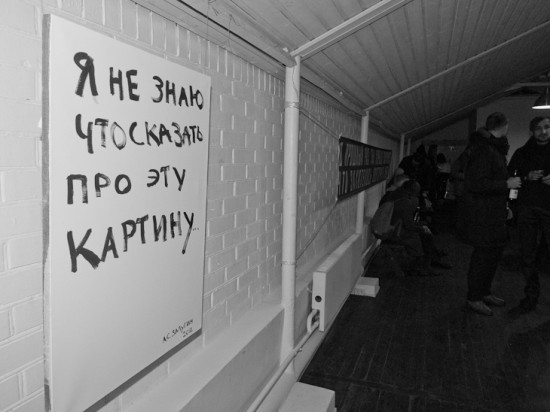 Я НЕ ЗНАЮ
ЧТО СКАЗАТЬ
ПРО ЭТУ
КАРТИНУ..